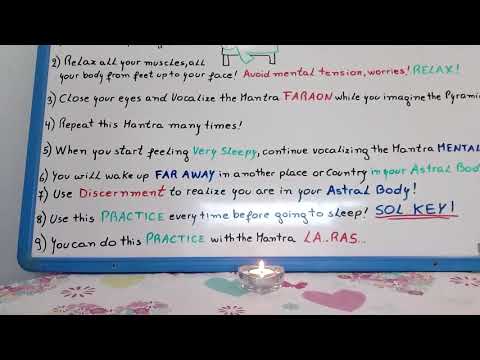 2) Relax all your muscles, all
your body from feet up to your face! Avoid mental tension, worries! RELAX!
3) Close your eyes and Vocalize the Mantra FARAON while you imagine the Pyrami
4) Repeat this Mantra many times!
5) When you start feeling Very Sleepy, continue vocalizing the Mantra MENTAL
6) You will wake up FAR AWAY in another place or Country in your Astral Bod
7) Use Discernment to realize you are in your Astral Body!
8) Use this PRACTICE every time before going to sleep! SOL KEY!
9) You can do this PRACTICE with the Mantra LA..RAS..